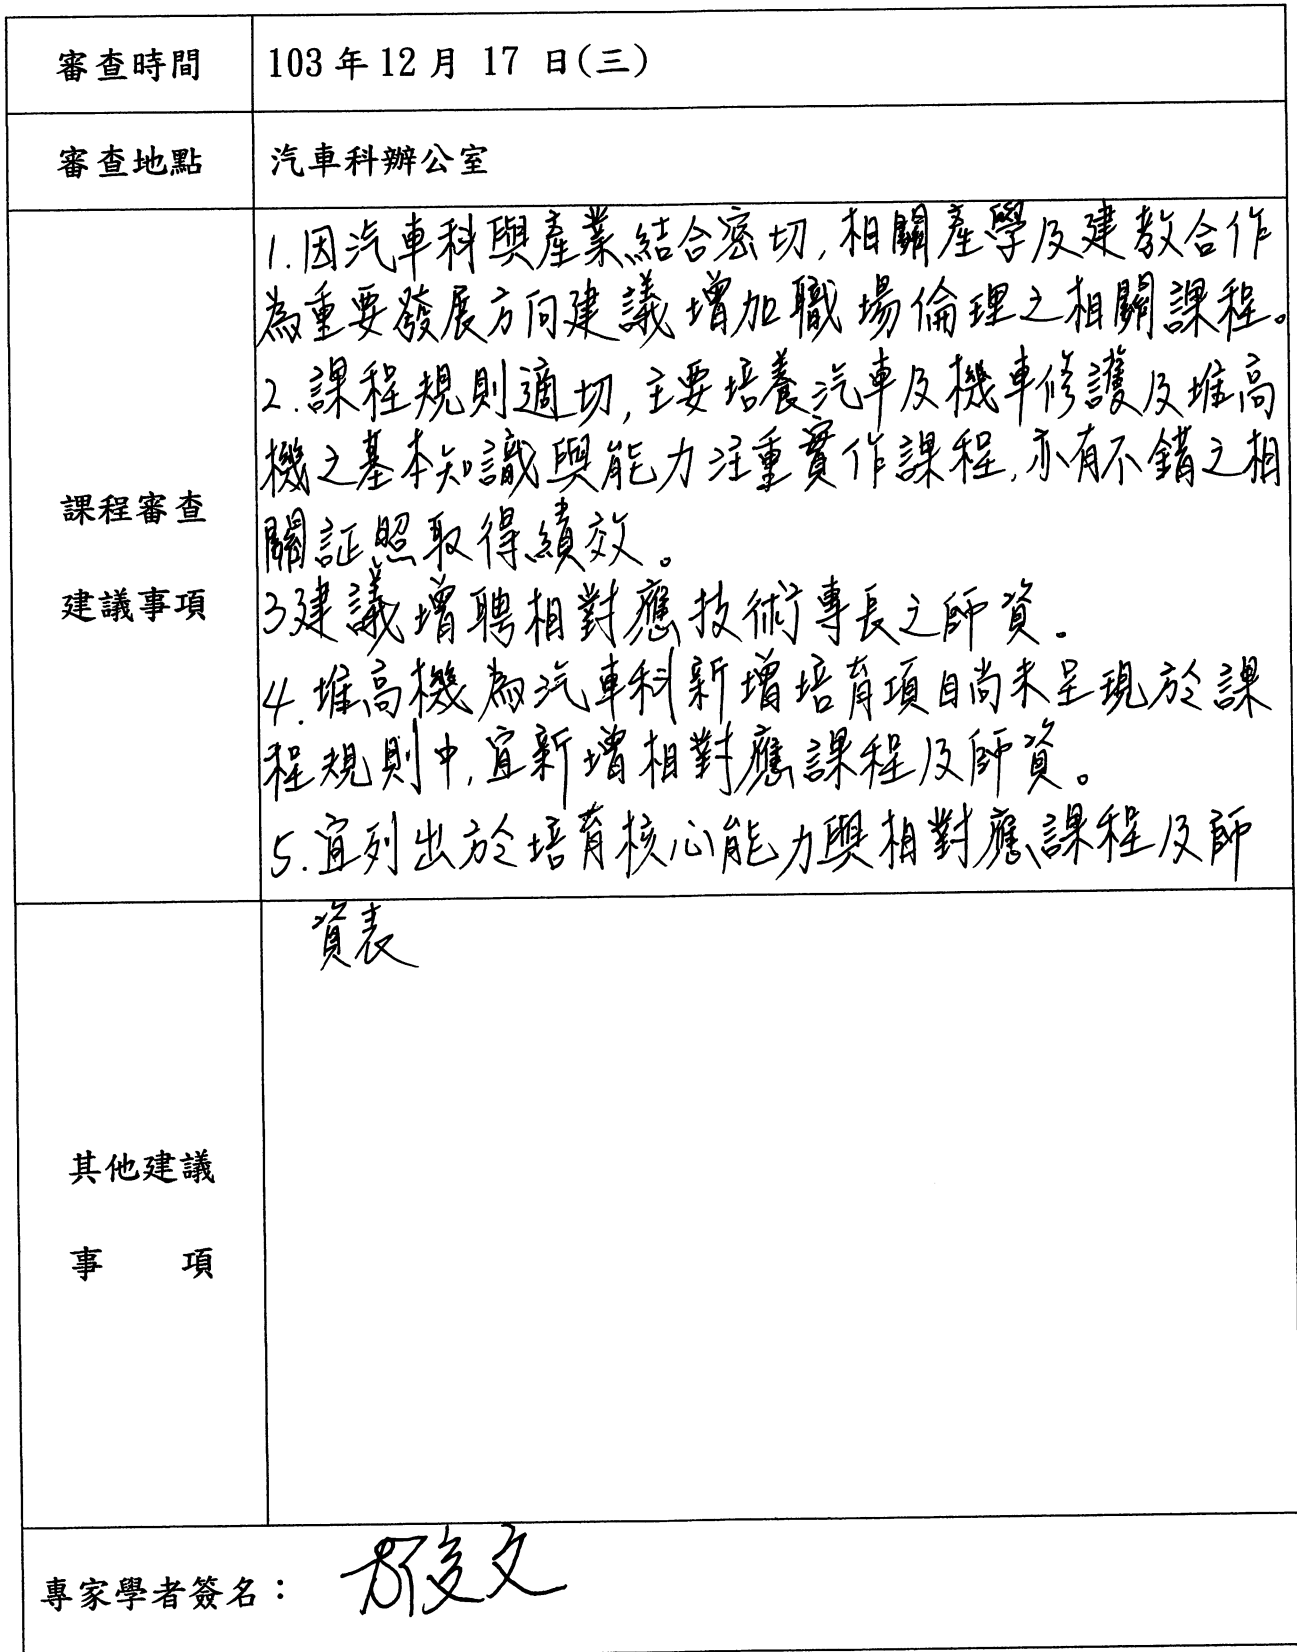 審查時間
103 年 12 月 17 日(三)
審查地點
汽車科辦公室
課程審查
建議事項
1.因汽車科與產業結合密切,相關產學及建教合作
為重要發展方向建議增加職場倫理之相關課程。
2.課程規則適切,主要培養汽車及機車修護及堆高
機之基本知識與能力注重實作課程,亦有不錯之相
關証照取得績效。
3建議增聘相對應技術專長之師資。
4.堆高機為汽車科新增培育項目尚未呈現於課
程規則中,宜新增相對應課程及師資。
5.宜列出於培育核心能力與相對應課程及師
資表
其他建議
事 項
專家學者簽名: